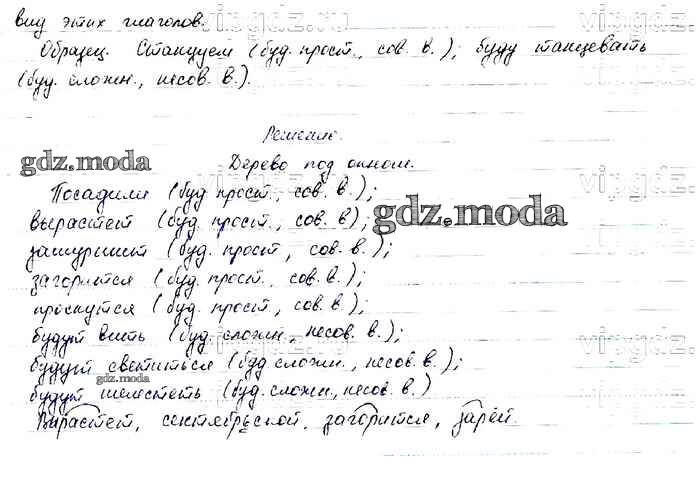 вид этих глаголов.
Образец. Станцуем (буд. прост., сов. в.); буду танцевать
(буд. сложн., несов. в.).
Решение.
gdz.moda
Дерево под окном.
Посадили (буд. прост., сов. в.);
вырастет (буд. прост., сов. в);
gdz.moda
зашуршит (буд. прост, сов. в.);
загорится (буд. прост., сов. в.);
проснутся (буд. прост, сов. в.);
будут вить (буд. сложн., несов. в.);
будут светиться (буд сложн., несов. в.);
gdz.moda
будут шелестеть (буд. сложн., несов в.)
Вырастет, сентябрьской, загорится, зарёй.